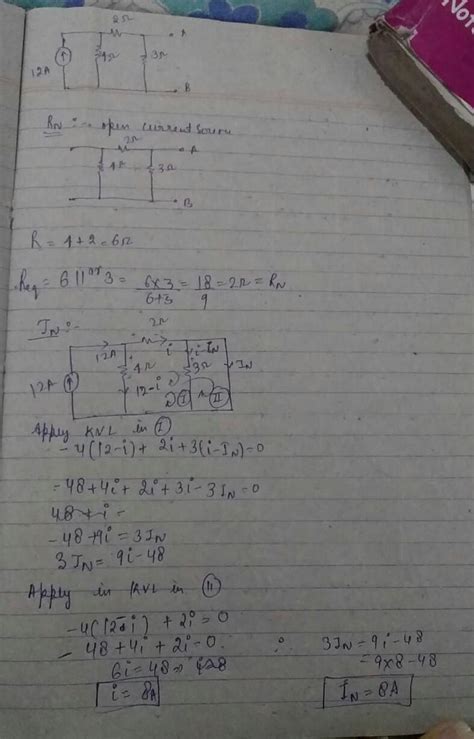 Not
2Ω
A
4Ω
3Ω
12A
B
RN :- open current source
2Ω
A
4Ω
3Ω
B
R = 4+2=6Ω
Req = 6 || 3 = 6×3 = 18 = 2Ω = RN
6+3 9
IN :-
2Ω
12A i i-IN
4Ω 3Ω IN
12A 12-i I II
Apply KVL in I
-4(12-i)+ 2i+3(i-IN)=0
=48+4i+ 2i+3i-3IN=0
48+i=
-48+9i=3IN
3IN= 9i-48
Apply in KVL in II
-4(12-i) +2i=0
-48+4i+2i=0. ∴ 3IN=9i-48
6i=48 =9×8-48
i= 8A IN=8A